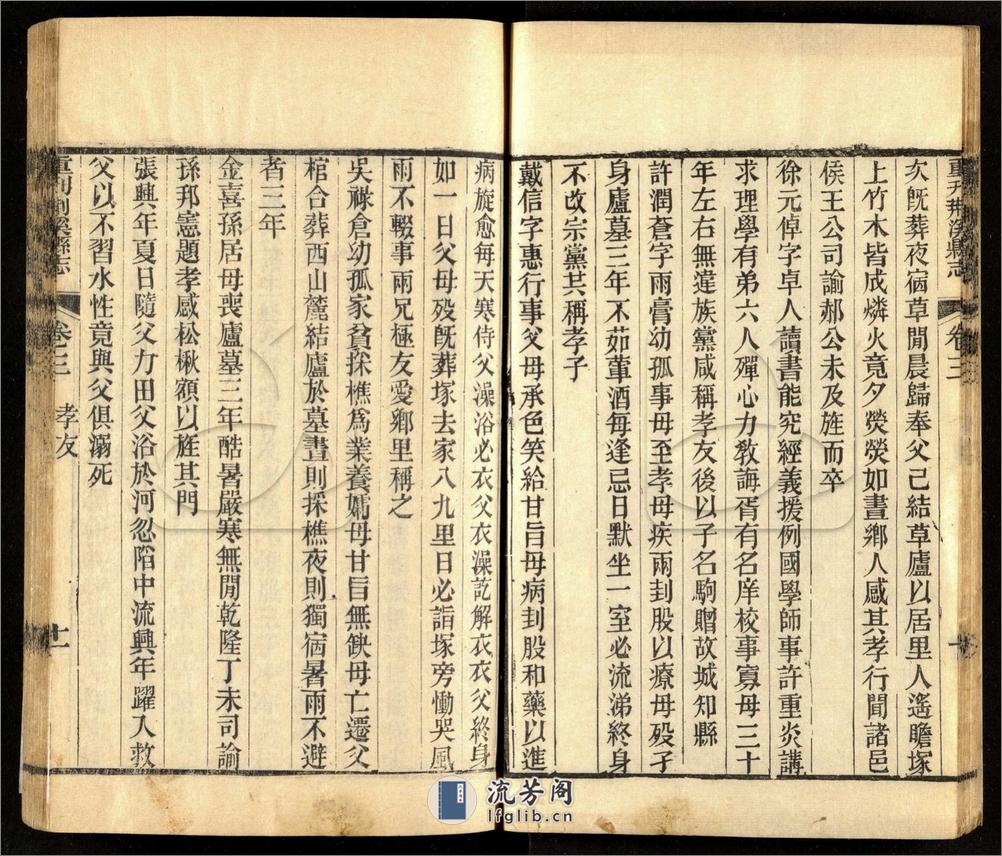 重刋荆溪縣志 卷三
次旣葬夜宿草閒晨歸奉父己結草廬以居里人遙瞻塚
上竹木皆成燐火竟夕熒熒如晝鄉人感其孝行聞諸邑
侯王公司諭郝公未及旌而卒
徐元倬字卓人讀書能究經義援例國學師事許重炎講
求理學有弟六人殫心力敎誨胥有名庠校事寡母三十
年左右無違族黨咸稱孝友後以子名駒贈故城知縣
許潤蒼字雨膏幼孤事母至孝母疾兩刲股以療母歿孑
身廬墓三年不茹葷酒每逢忌日默坐一室必流涕終身
不改宗黨共稱孝子
戴信字惠行事父母承色笑給甘旨母病刲股和藥以進
病旋愈每天寒侍父澡浴必衣父衣澡訖解衣衣父終身
如一日父母歿旣葬塚去家八九里日必詣塚旁慟哭風
雨不輟事兩兄極友愛鄉里稱之
吳祿倉幼孤家貧採樵爲業養孀母甘旨無缺母亡遷父
棺合葬西山麓結廬於墓晝則採樵夜則獨宿暑雨不避
者三年
金喜孫居母喪廬墓三年酷暑嚴寒無閒乾隆丁未司諭
孫邦憲題孝感松楸額以旌其門
張興年夏日隨父力田父浴於河忽陷中流興年躍入救
父以不習水性竟與父俱溺死
重刋荆溪縣志 卷三 孝友 十一
流芳阁
lfglib.cn